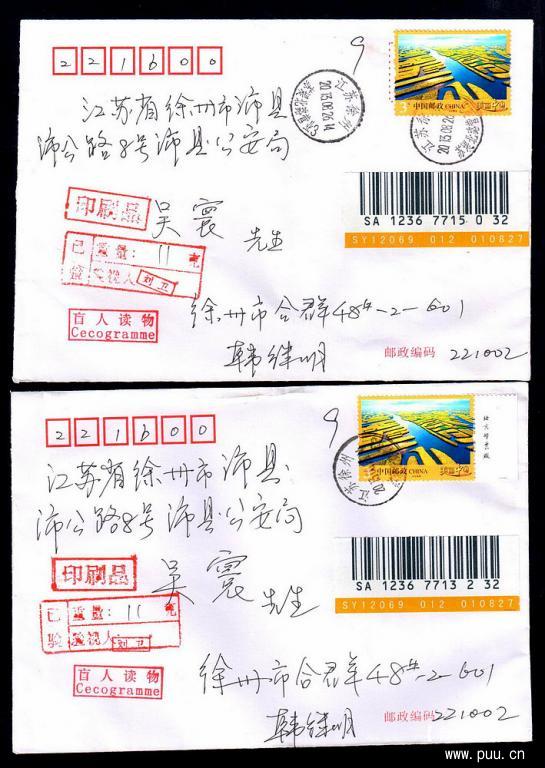 221600
9
江苏省徐州市沛县
沛公路8号沛县公安局
3元
中国邮政 CHINA
江苏徐州
2015.08.26.14
江苏徐州
2015.08.26
SA 1236 7715 0 32
SY12069 012 010827
印刷品
吴寰
先生
已验
重量: 11 克
验视人 刘卫
徐州市合群48#-2-601
盲人读物
Cecogramme
韩继明
邮政编码 221002
221600
9
江苏省徐州市沛县
沛公路8号沛县公安局
中国邮政 CHINA
江苏徐州
SA 1236 7713 2 32
SY12069 012 010827
印刷品
吴寰
先生
已验
重量: 11 克
验视人 刘卫
徐州市合群48#-2-601
盲人读物
Cecogramme
韩继明
邮政编码 221002
www.puu.cn